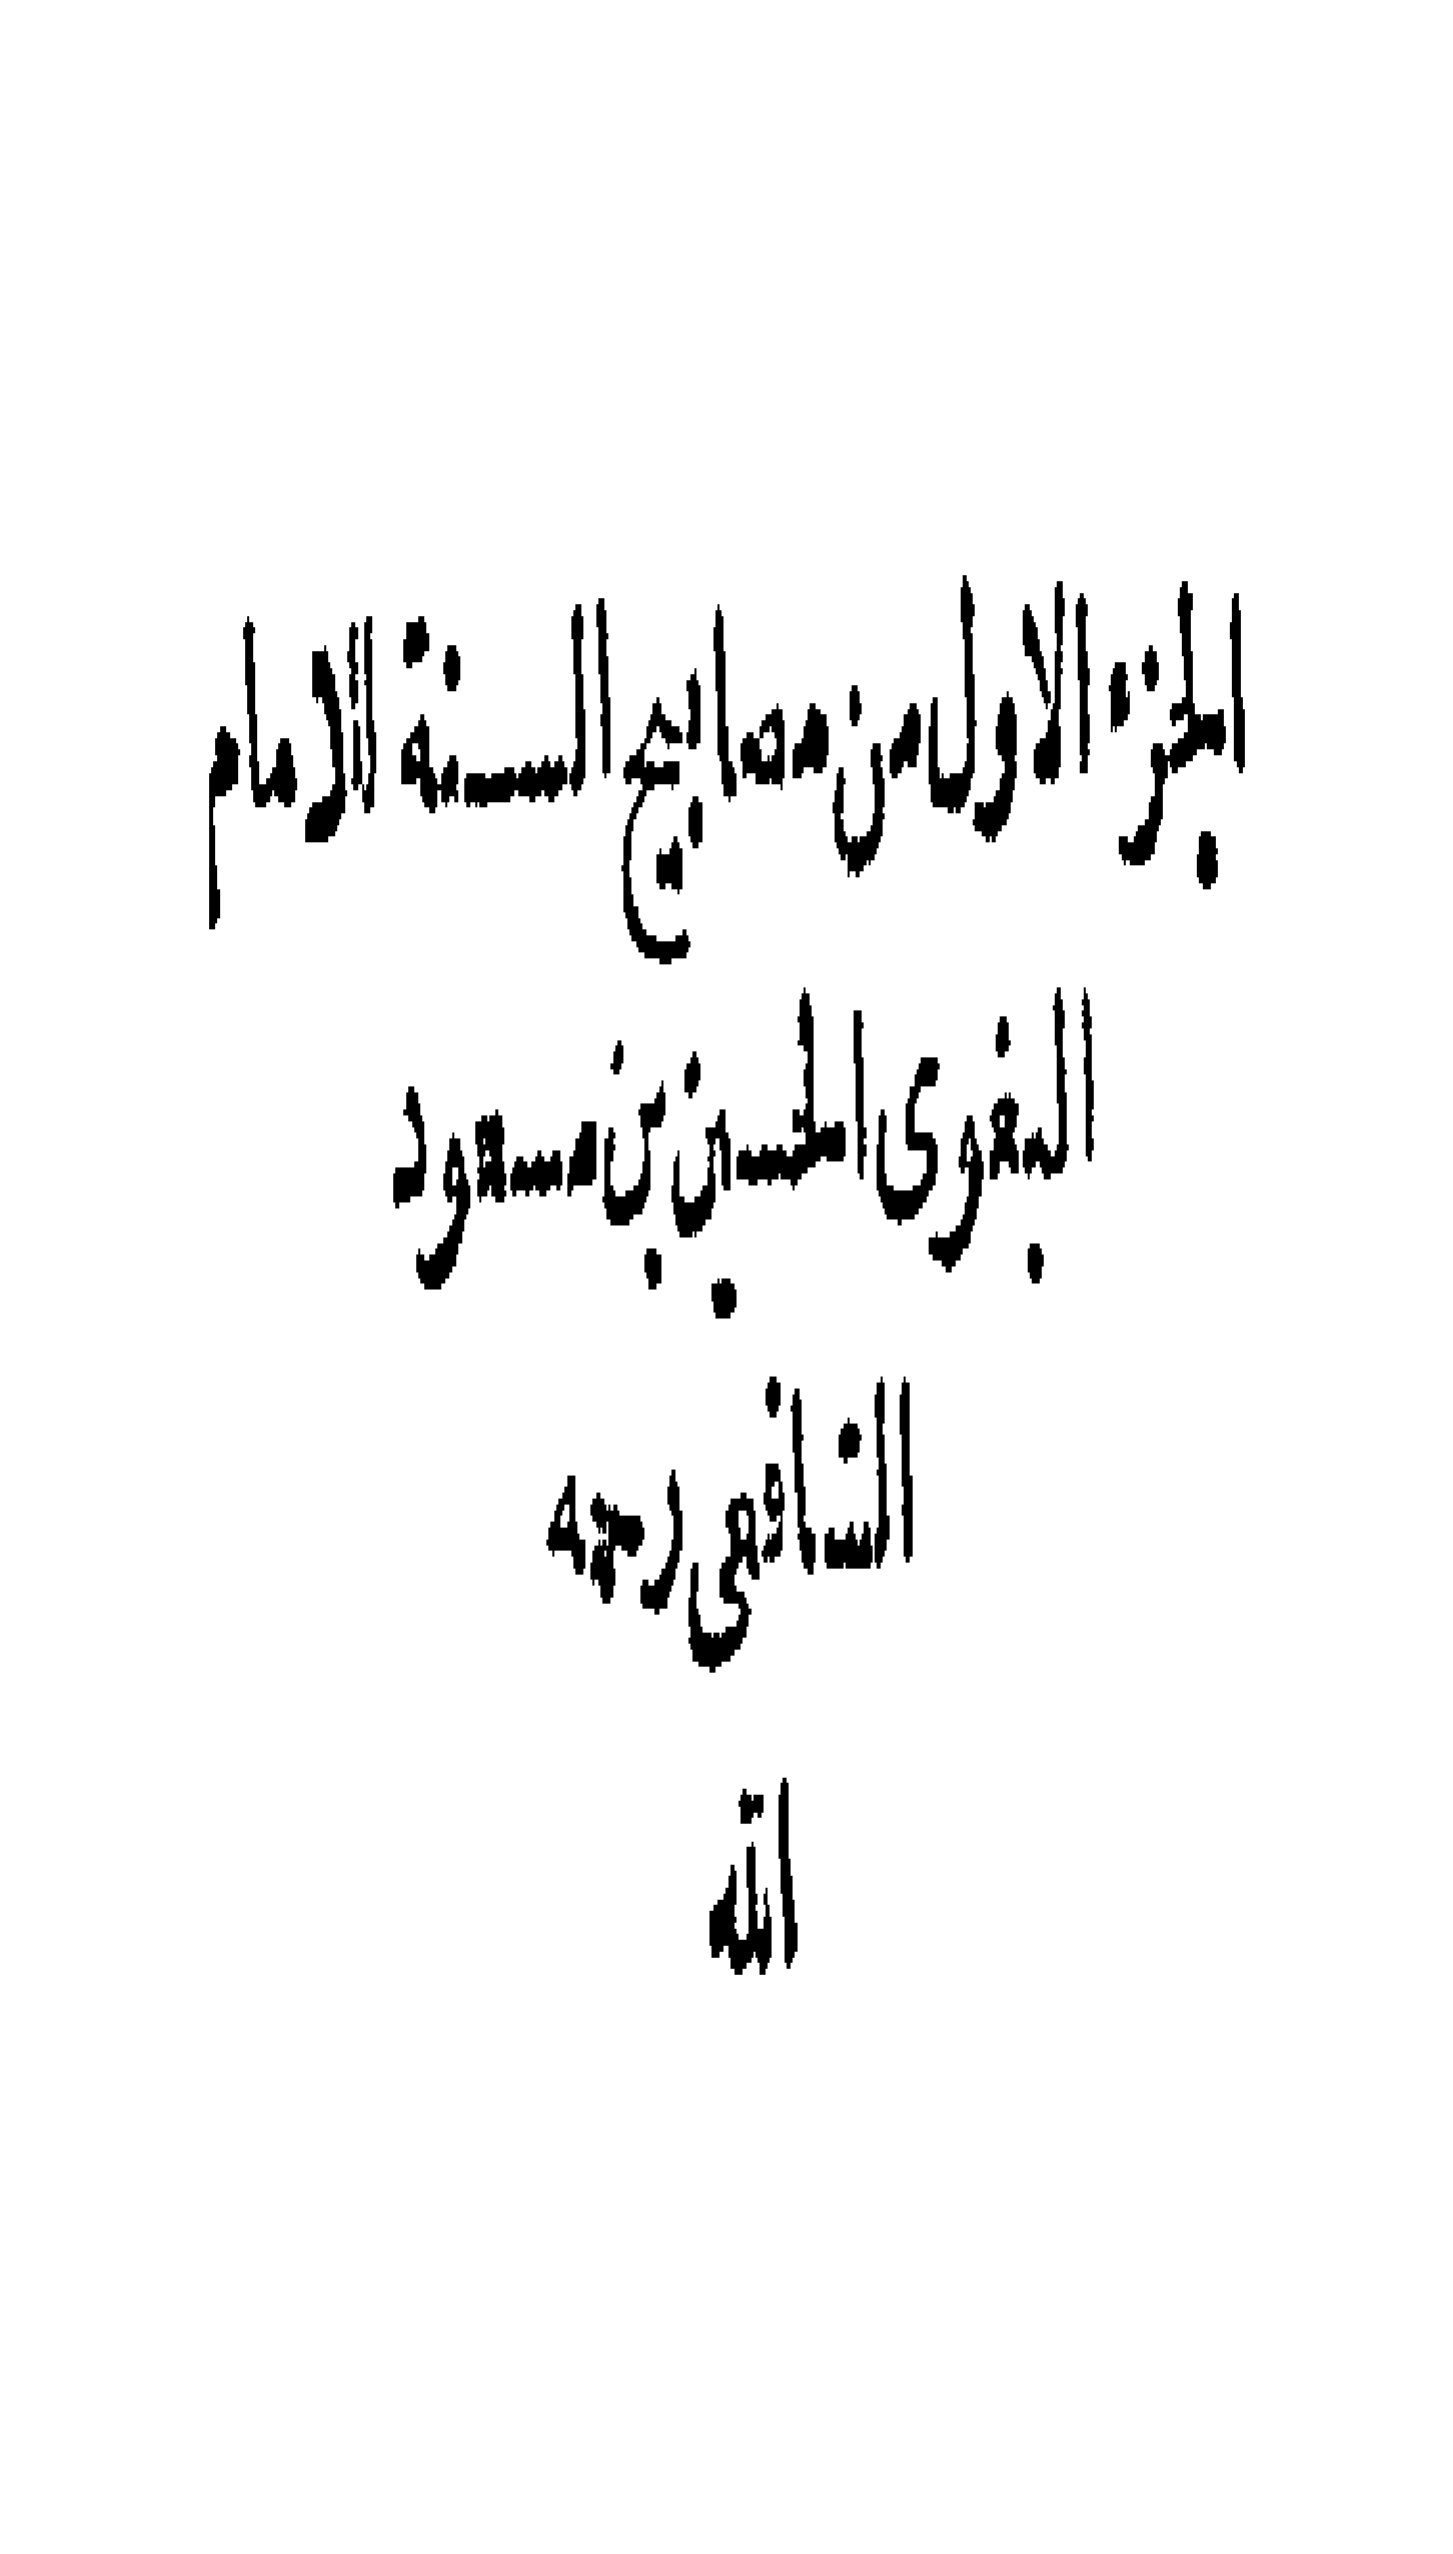 الجزء الاول من مصابيح السنة للامام
البغوى الحسين بن مسعود
الشافعى رحمه
الله